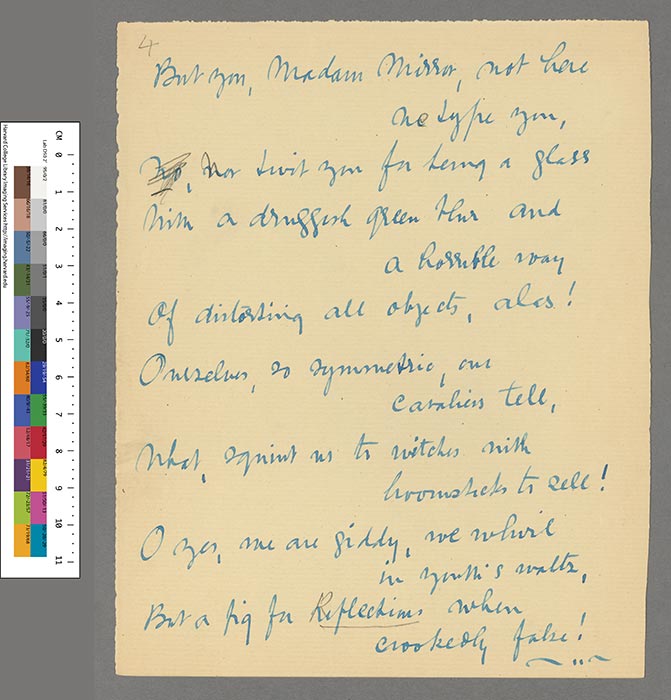 4
But you, Madam Mirror, not here
we type you,
No, Nor twit you for being a glass
With a druggish green blur and
a horrible way
Of distorting all objects, alas!
Ourselves, so symmetric, our
cavaliers tell,
What, squint us to witches with
broomsticks to sell!
O yes, we are giddy, we whirl
in youth's waltz,
But a fig for Reflections when
crookedly false!
CM 0 1 2 3 4 5 6 7 8 9 10 11
Harvard College Library Imaging Services http://imaging.harvard.edu